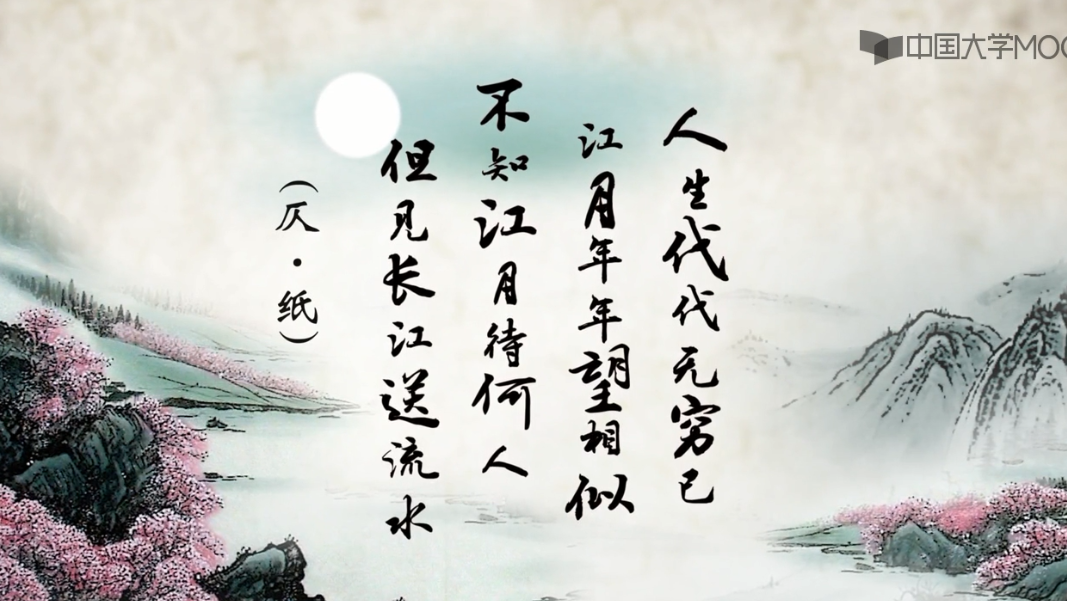 中国大学MOO
人生代代无穷已
江月年年望相似
不知江月待何人
但见长江送流水
（仄·纸）